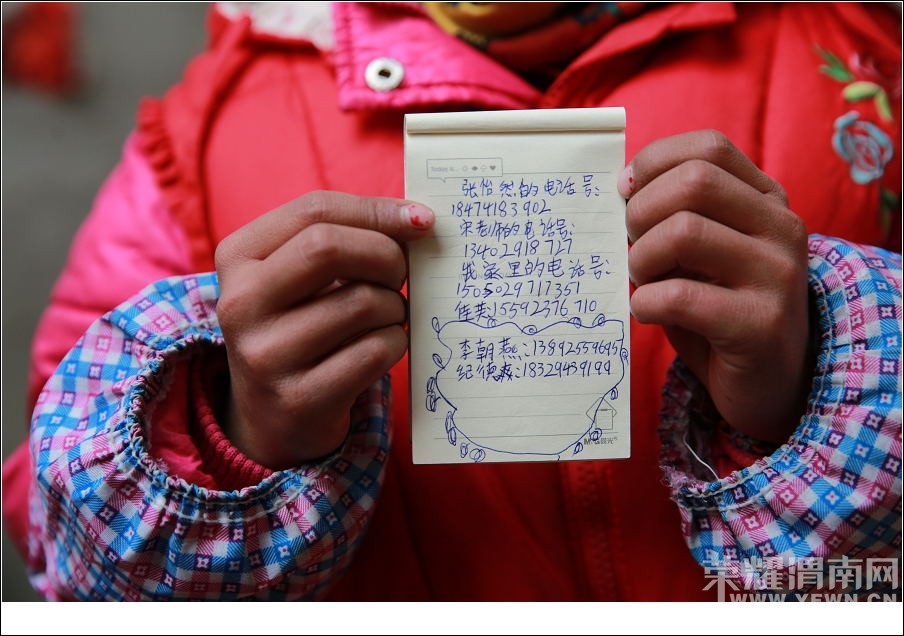 Today is...
张怡然的电话号:
18474183902
宋老师的电话号:
13402918727
我家里的电话号:
1505029717351
佳美:15592376710
李朝燕:13892559695
纪德燕:18329439199
M&G晨光
荣耀渭南网
WWW.YEWN.CN